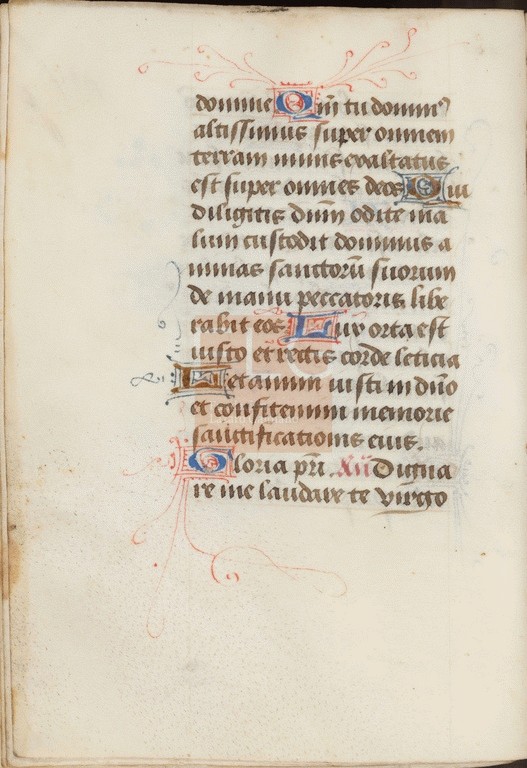 domine Qm̄ tu domin⁹
altissimus super omnem
terram nimis exaltatus
est super omnes deos Qui
diligitis dn̄m odite ma
lum custodit dominus a
nimas sanctorū suorum
de manu peccatoris libe
rabit eos Lux orta est
iusto et rectis corde leticia
Letamini iusti in dn̄o
et confitemini memorie
sanctificationis eius.
Gloria pr̄i. Xn̄ Digna
re me laudare te virgo